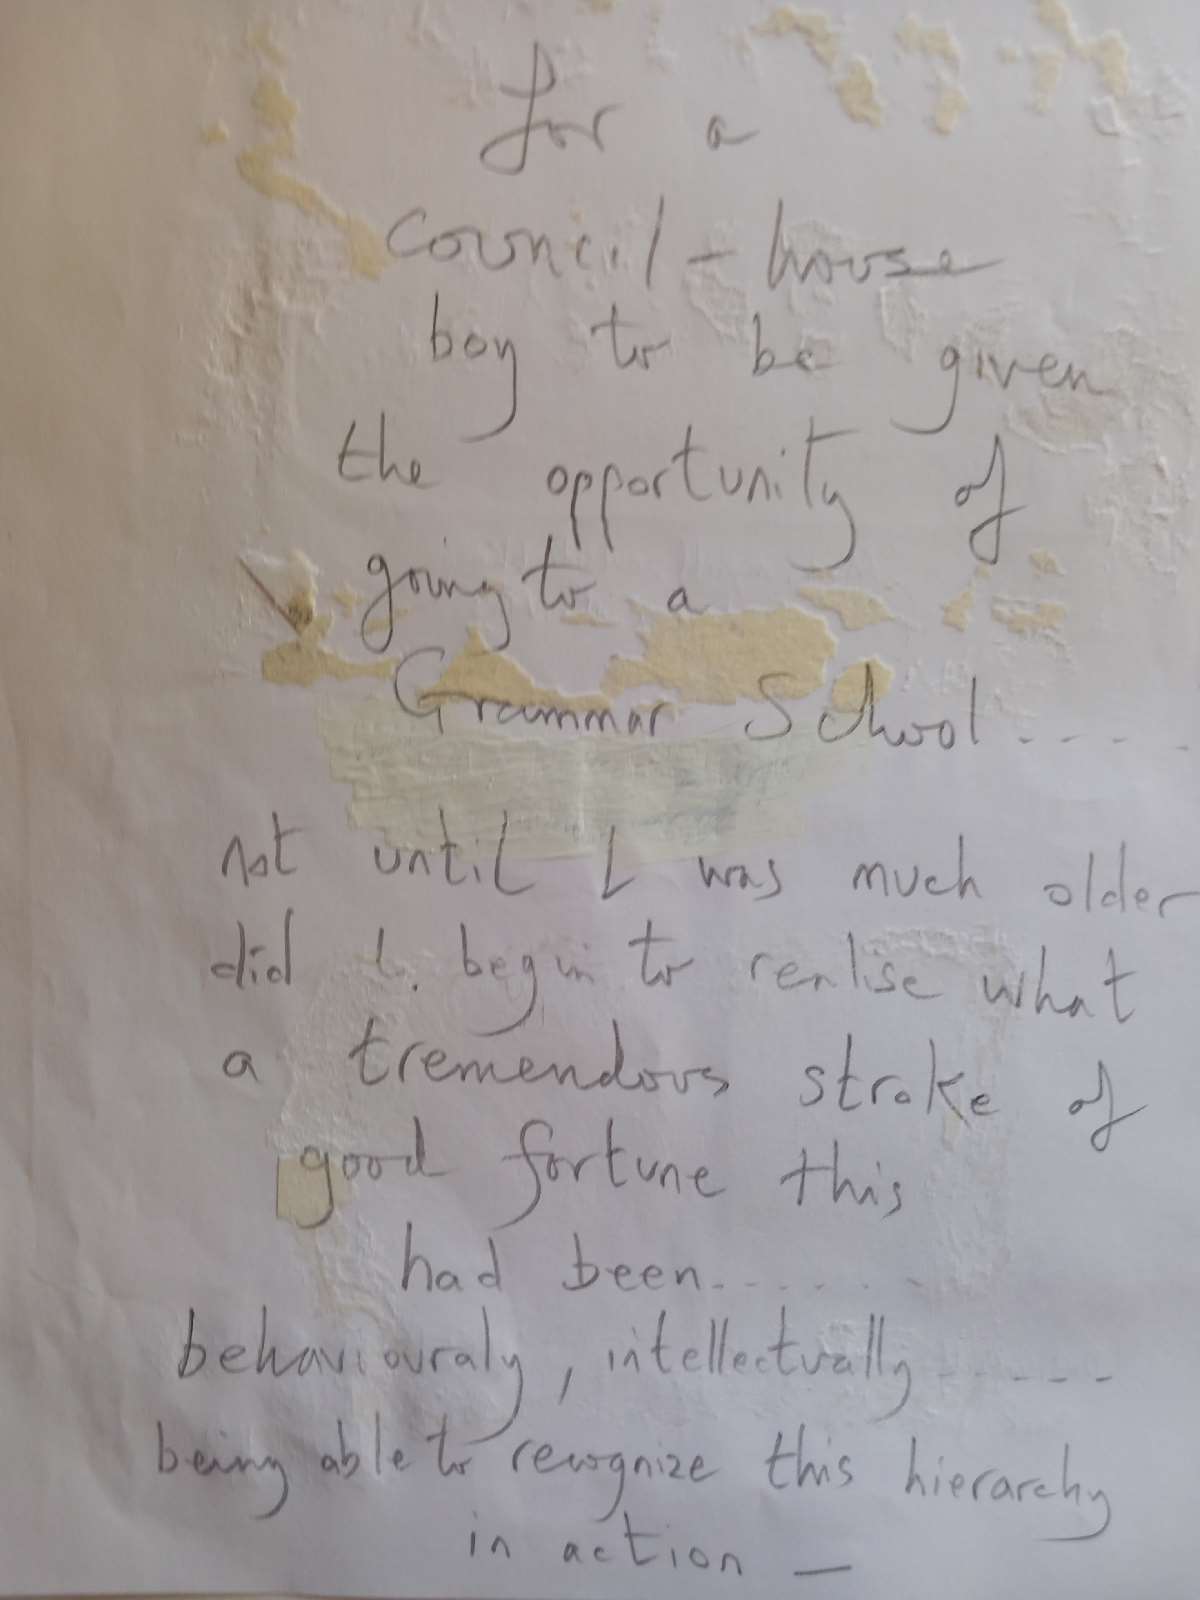 for a
council-house
boy to be given
the opportunity of
going to a
Grammar School.....
not until I was much older
did I. begin to realise what
a tremendous stroke of
good fortune this
had been.......
behaviouraly, intellectually......
being able to recognize this hierarchy
in action –